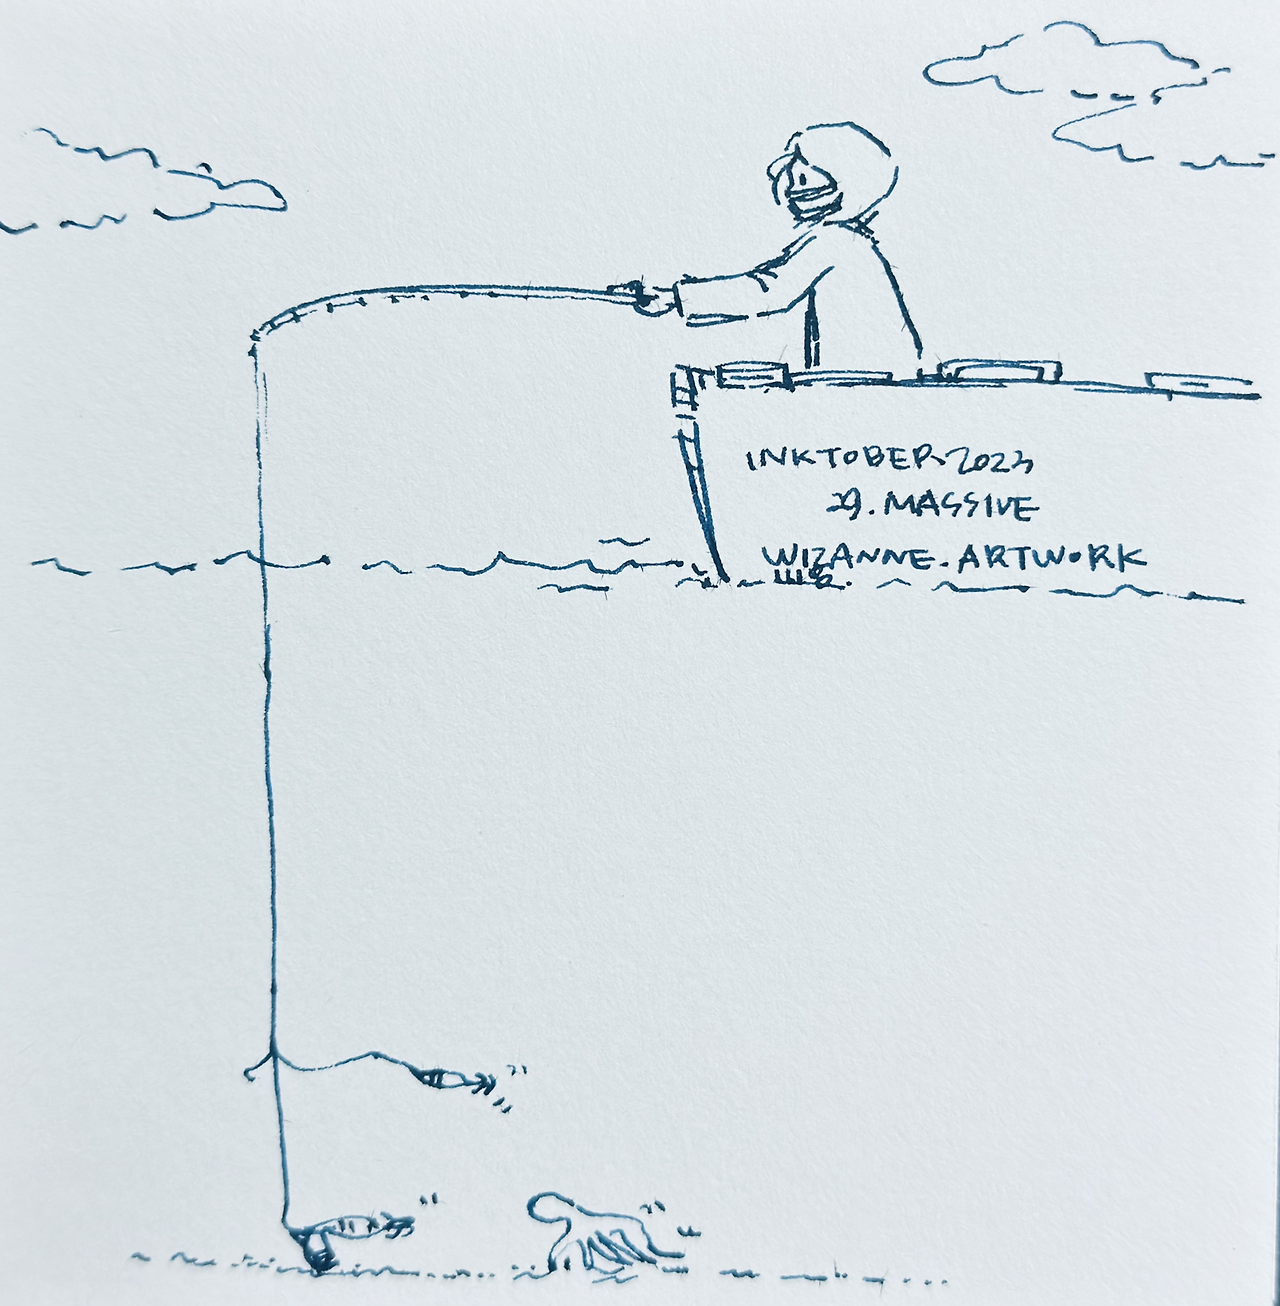 INKTOBER.2023
29. MASSIVE
WIZANNE. ARTWORK